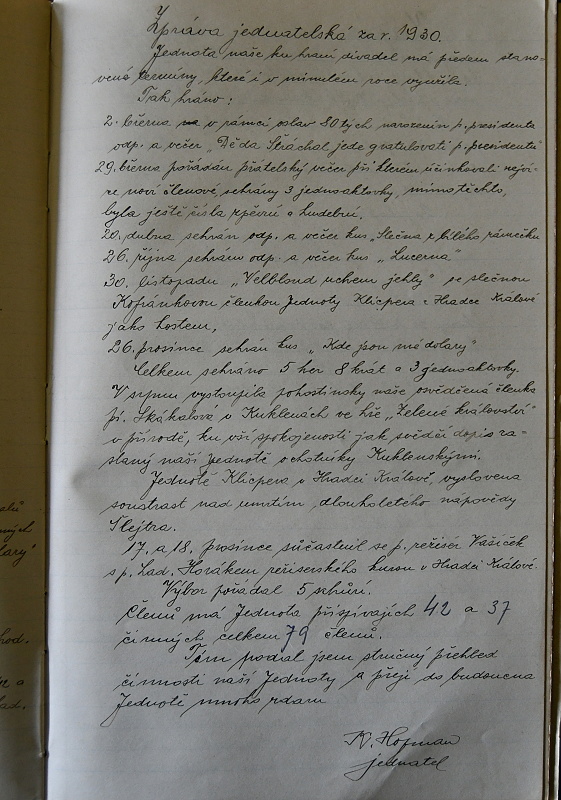 Zpráva jednatelská za r. 1930.
Jednota naše ku hraní divadel má předem stano-
vené termíny, které i v minulém roce využila.
Tak hráno:
2. března v rámci oslav 80tých narozenin p. presidenta
odp. a večer „Děda Stráchal jede gratulovati p. presidentu"
29. března pořádán přátelský večer při kterém účinkovali nejví-
ce noví členové, sehrány 3 jednoaktovky, mimo těchto,
byla ještě čísla zpěvní a hudební.
20. dubna sehrán odp. a večer kus „Slečna z bílého zámečku
26. října sehrán odp. a večer kus „Lucerna"
30. listopadu „Velbloud uchem jehly" se slečnou
Kofránkovou členkou Jednoty Klicpera z Hradce Králové
jako hostem,
26. prosince sehrán kus „Kde jsou mé dolary"
Celkem sehráno 5 her 8 krát a 3 jednoaktovky.
V srpnu vystoupila pohostinsky naše osvědčená členka
pí. Skákalová v Kuklenách ve hře „Zelené království"
v přírodě, ku vší spokojenosti jak svědčí dopis za-
slaný naší Jednotě ochotníky Kuklenskými.
Jednotě Klicpera v Hradci Králové, vyslovena
soustrast nad úmrtím dlouholetého nápovědy
Šlejtra.
17. a 18. prosince súčastnil se p. režisér Vašíček
s p. Lad. Horákem režiserského kursu v Hradci Králové.
Výbor pořádal 5 schůzí.
Členů má Jednota přispívajících 42 a 37
činných, celkem 79 členů.
Tím podal jsem stručný přehled
činnosti naší Jednoty a přeji do budoucna
Jednotě mnoho zdaru
K. Hofman
jednatel